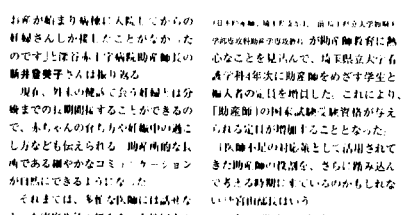 お産が始まり病棟に入院してからの
妊婦さんしか接したことがなかった
のです」と深谷赤十字病院助産師長の
新井登美子さんは振り返る
現在、外来の健診で会う妊婦とは分
娩までの長期間接することができるの
で、赤ちゃんの育ち方や妊娠中の過ご
し方なども伝えられる 助産師的な長
所である細やかなコミュニケーション
が自然にできるようになった
それまでは、多忙な医師には話せな
が助産師教育に熱
心なことを見込んで、埼玉県立大学看
護学科4年次に助産師をめざす学生と
編入者の定員を増員した。これにより、
「助産師」の国家試験受験資格が与え
られる定員が増加することとなった
「医師不足の対応策として活用されて
きた助産師の役割を、さらに踏み込ん
で考える時期にきているのかもしれな
い」と宮山部長はいう